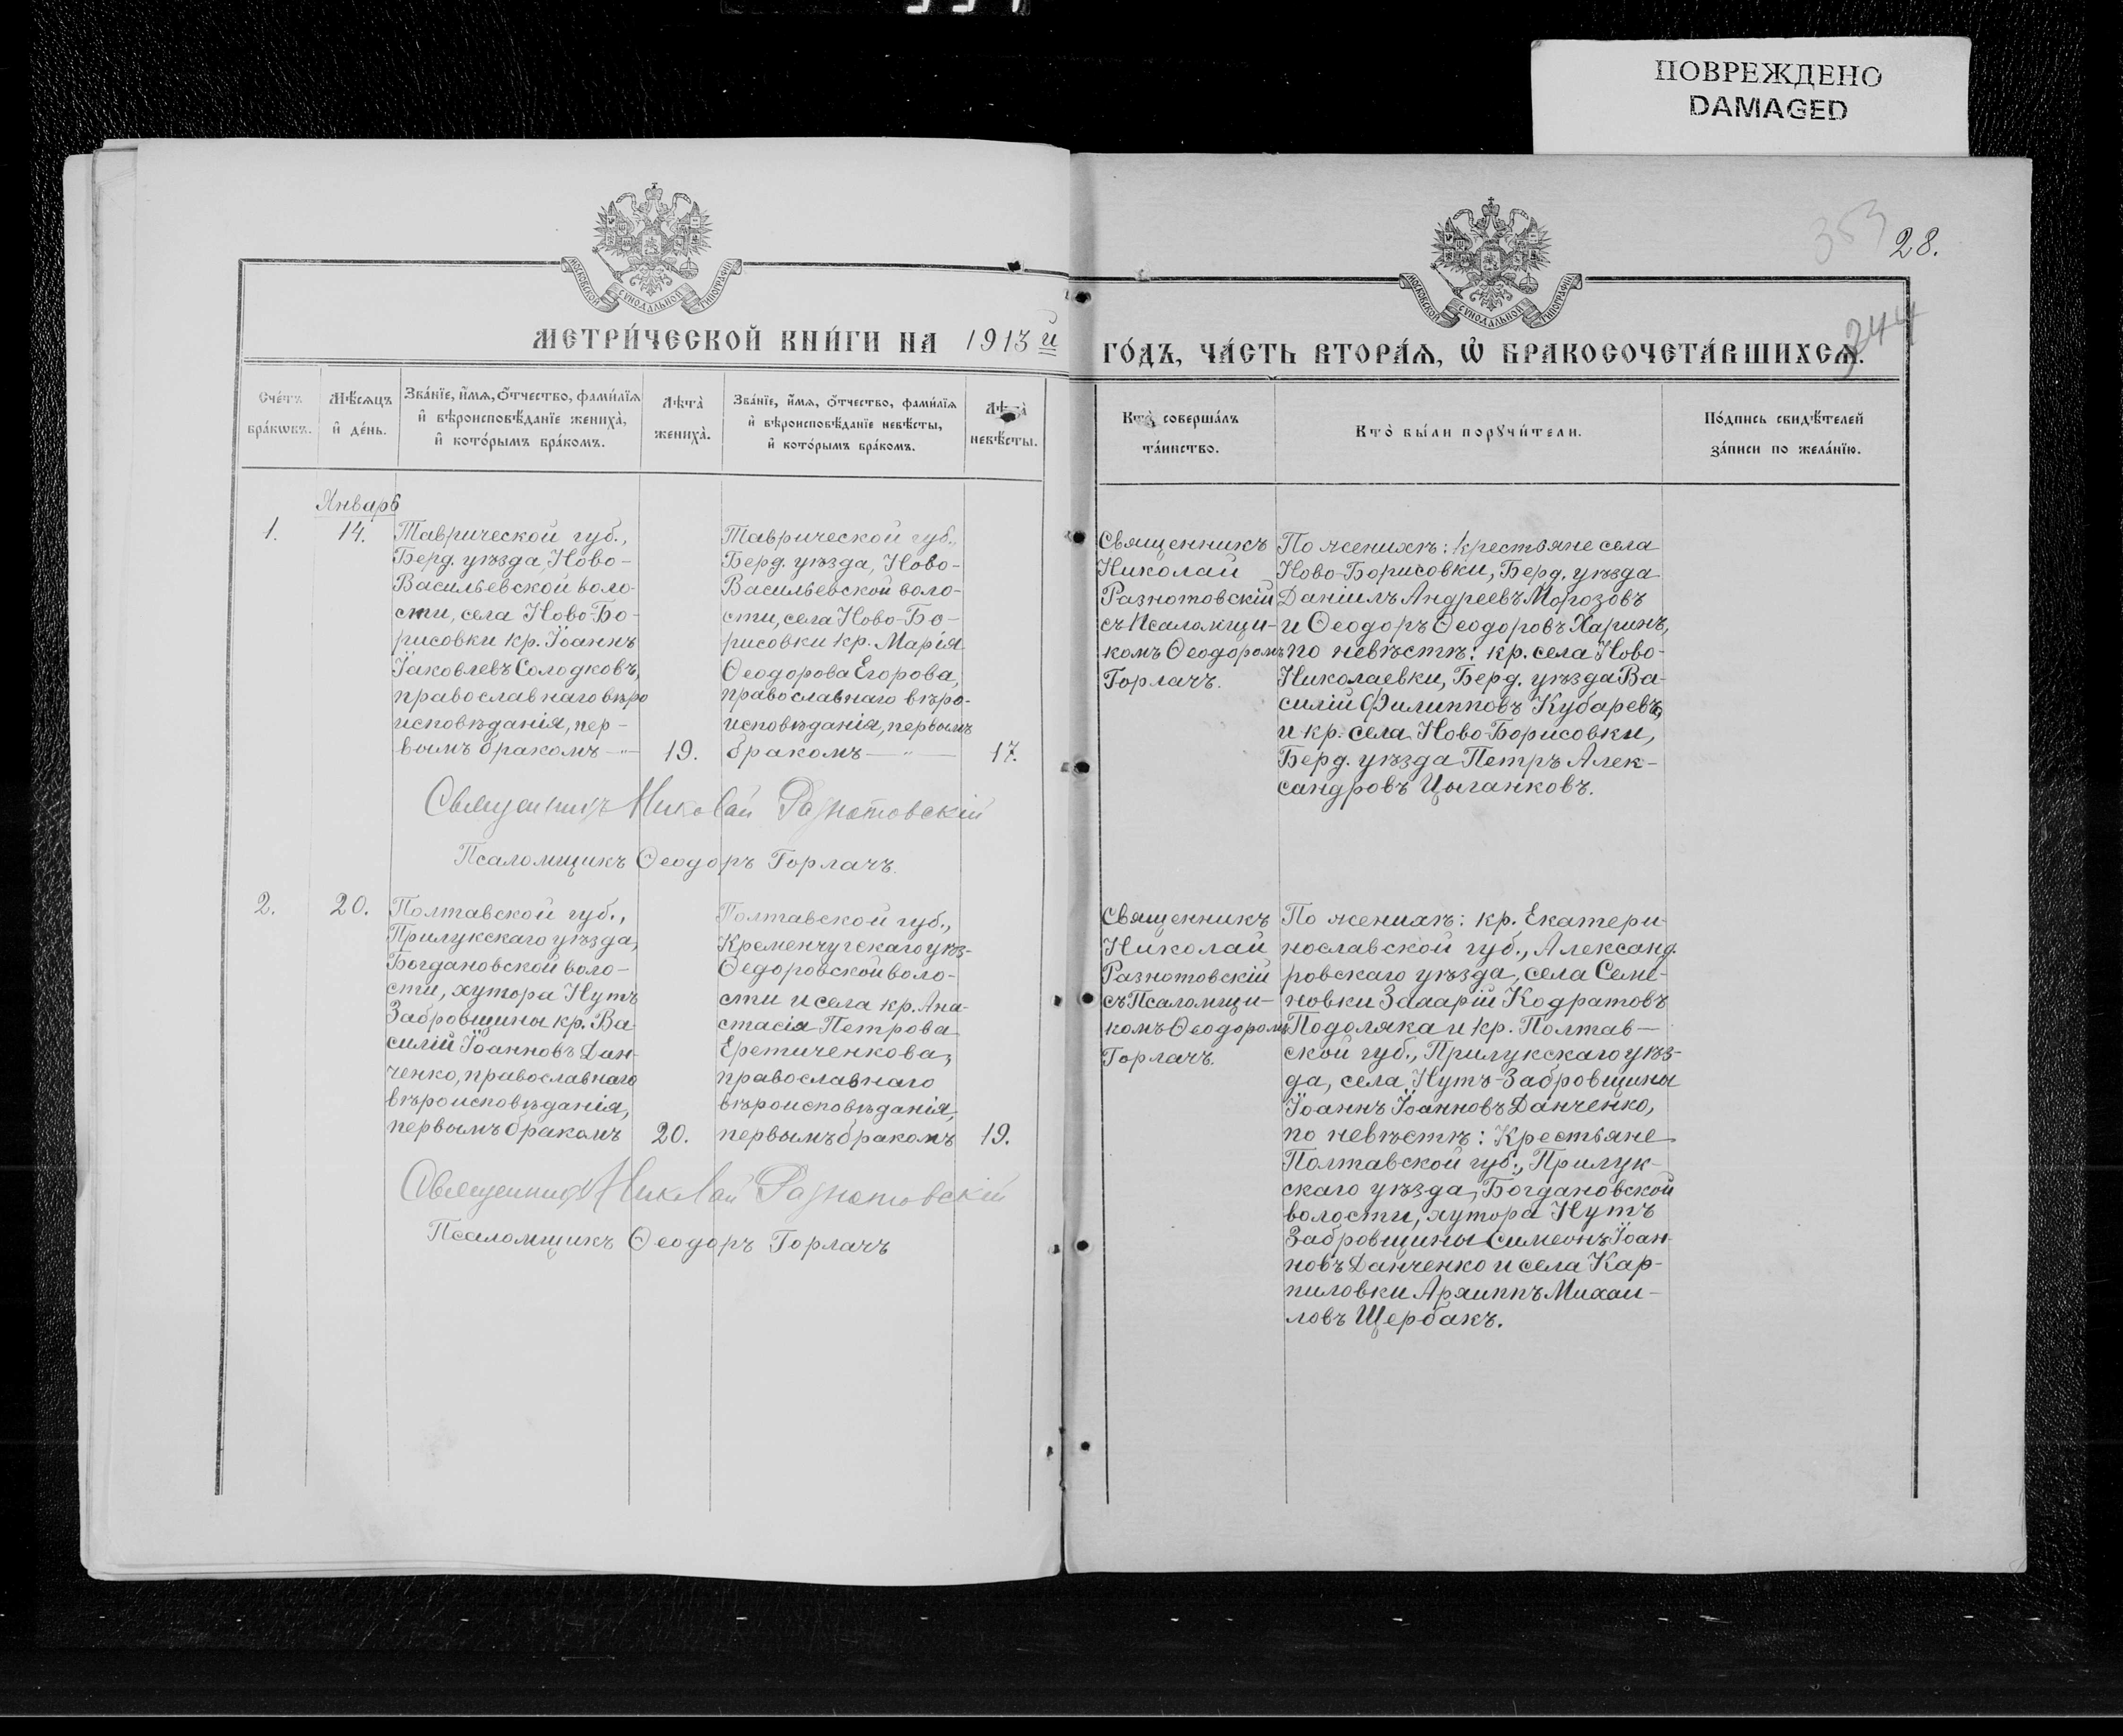 ПОВРЕЖДЕНО
DAMAGED
28.
353
244
МОСКОВСКОЙ СѴНОДАЛЬНОЙ ТИПОГРАФІИ
МОСКОВСКОЙ СѴНОДАЛЬНОЙ ТИПОГРАФІИ
МЕТРИ́ЧЕСКОЙ КНИ́ГИ НА 1913 й
ГО́ДЪ, ЧА́СТЬ ВТОРА́Я, Ѡ҆ БРАКОСОЧЕТА́ВШИХСЯ.
Сче́тъ
бра́кѡвъ.
Мѣ́сяцъ
и҆ де́нь.
Зва́нїе, и҆́мя, о҆́тчество, фами́лїя
и҆ вѣроисповѣ́данїе жениха̀,
и҆ кото́рымъ бра́комъ.
Лѣта̀
жениха̀.
Зва́нїе, и҆́мя, о҆́тчество, фами́лїя
и҆ вѣроисповѣ́данїе невѣ́сты,
и҆ кото́рымъ бра́комъ.
Лѣта̀
невѣ́сты.
Кто̀ соверша́лъ
та́инство.
Кто̀ бы́ли порꙋчи́тели.
По́дпись свидѣ́телей
за́писи по жела́нїю.
Январь
1.
14.
Таврической губ.,
Берд. уѣзда, Ново-
Васильевской воло-
сти, села Ново-Бо-
рисовки кр. Іоаннъ
Іаковлевъ Солодковъ,
православнаго вѣро
исповѣданія, пер-
вымъ бракомъ — " —
19.
Таврической губ.,
Берд. уѣзда, Ново-
Васильевской воло-
сти, села Ново-Бо-
рисовки кр. Марія
Ѳеодорова Егорова,
православнаго вѣро-
исповѣданія, первымъ
бракомъ — " —
17.
Священникъ
Николай
Разнотовскій
съ Псаломщи-
комъ Ѳеодоромъ
Горлачъ.
По женихѣ: крестьяне села
Ново-Борисовки, Берд. уѣзда
Даніилъ Андреевъ Морозовъ
и Ѳеодоръ Ѳеодоровъ Харинъ,
по невѣстѣ: кр. села Ново-
Николаевки, Берд. уѣзда Ва-
силій Филипповъ Кубаревъ,
и кр. села Ново-Борисовки,
Берд. уѣзда Петръ Алек-
сандровъ Цыганковъ.
Священникъ Николай Разнотовскій
Псаломщикъ Ѳеодоръ Горлачъ.
2.
20.
Полтавской губ.,
Прилукскаго уѣзда,
Богдановской воло-
сти, хутора Нутъ
Забровщины кр. Ва-
силій Іоанновъ Дан-
ченко, православнаго
вѣроисповѣданія,
первымъ бракомъ
20.
Полтавской губ.,
Кременчугскаго уѣз-
Ѳедоровской воло-
сти и села кр. Ана-
стасія Петрова
Еретиченкова,
православнаго
вѣроисповѣданія,
первымъ бракомъ
19.
Священникъ
Николай
Разнотовскій
съ Псаломщи-
комъ Ѳеодоромъ
Горлачъ.
По женихѣ: кр. Екатери-
нославской губ., Александ-
ровскаго уѣзда, села Семе-
новки Захарій Кодратовъ
Подоляка и кр. Полтав-
ской губ., Прилукскаго уѣз-
да, села Нутъ-Забровщины
Іоаннъ Іоанновъ Данченко,
по невѣстѣ: Крестьяне
Полтавской губ., Прилук-
скаго уѣзда, Богдановской
волости, хутора Нутъ
Забровщины Симеонъ Іоан-
новъ Данченко и села Кар-
пиловки Архиппъ Михаи-
ловъ Щербакъ.
Священникъ Николай Разнотовскій
Псаломщикъ Ѳеодоръ Горлачъ